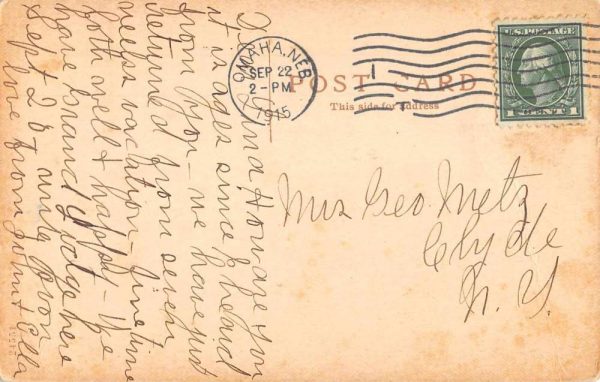 OMAHA, NEB.
SEP 22
2-PM
1915
U.S. POSTAGE
1 CENT 1
POST CARD
This side for address
Mrs Geo. Metz
Clyde
N. Y.
Dear and How are you
it is ages since I heard
from you - we have just
returned from seven
weeks vacation - fine time
both well & happy - We
have Grand Lodge here
Sept 28 until Nov
love from John & Ella